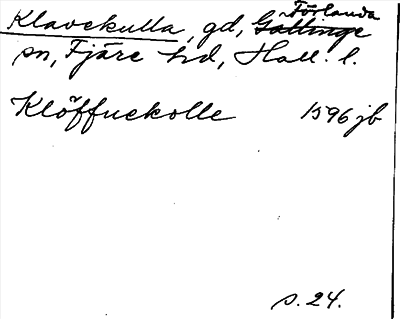 Klavekulla, gd, Gällinge Förlanda
sn, Fjäre hd, Hall. l.
Klöffuekolle 1596 jb
s. 24.